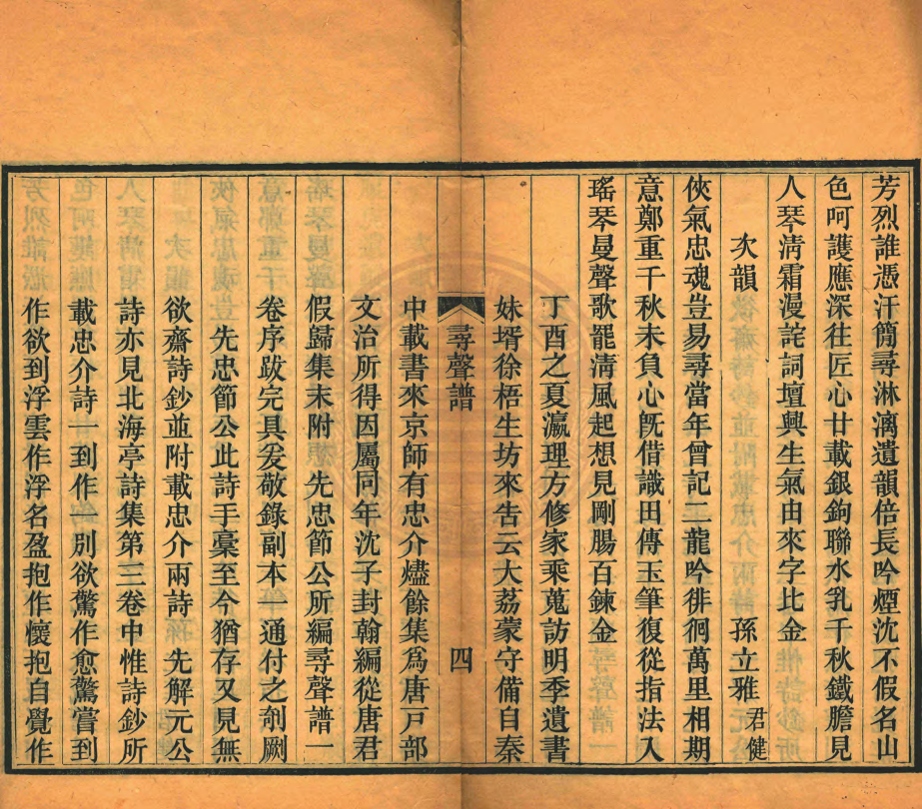 芳烈誰憑汗簡尋淋漓遺韻倍長吟煙沈不假名山
色呵護應深往匠心廿載銀鉤聯水乳千秋鐵膽見
人琴淸霜漫詫詞壇興生氣由來字比金
次韻 孫立雅 君健
俠氣忠魂豈易尋當年曾記二龍吟徘徊萬里相期
意鄭重千秋未負心旣借識田傳玉筆復從指法入
瑤琴曼聲歌罷淸風起想見剛腸百鍊金
丁酉之夏瀛理方修家乘蒐訪明季遺書
妹壻徐梧生坊來告云大荔蒙守備自秦
尋聲譜 四
中載書來京師有忠介燼餘集爲唐戸部
文治所得因屬同年沈子封翰編從唐君
假歸集末附 先忠節公所編尋聲譜一
卷序跋完具爰敬錄副本一通付之剞劂
先忠節公此詩手稾至今猶存又見無
欲齋詩鈔並附載忠介兩詩 先解元公
詩亦見北海亭詩集第三卷中惟詩鈔所
載忠介詩一到作一別欲驚作愈驚嘗到
作欲到浮雲作浮名盈抱作懷抱自覺作